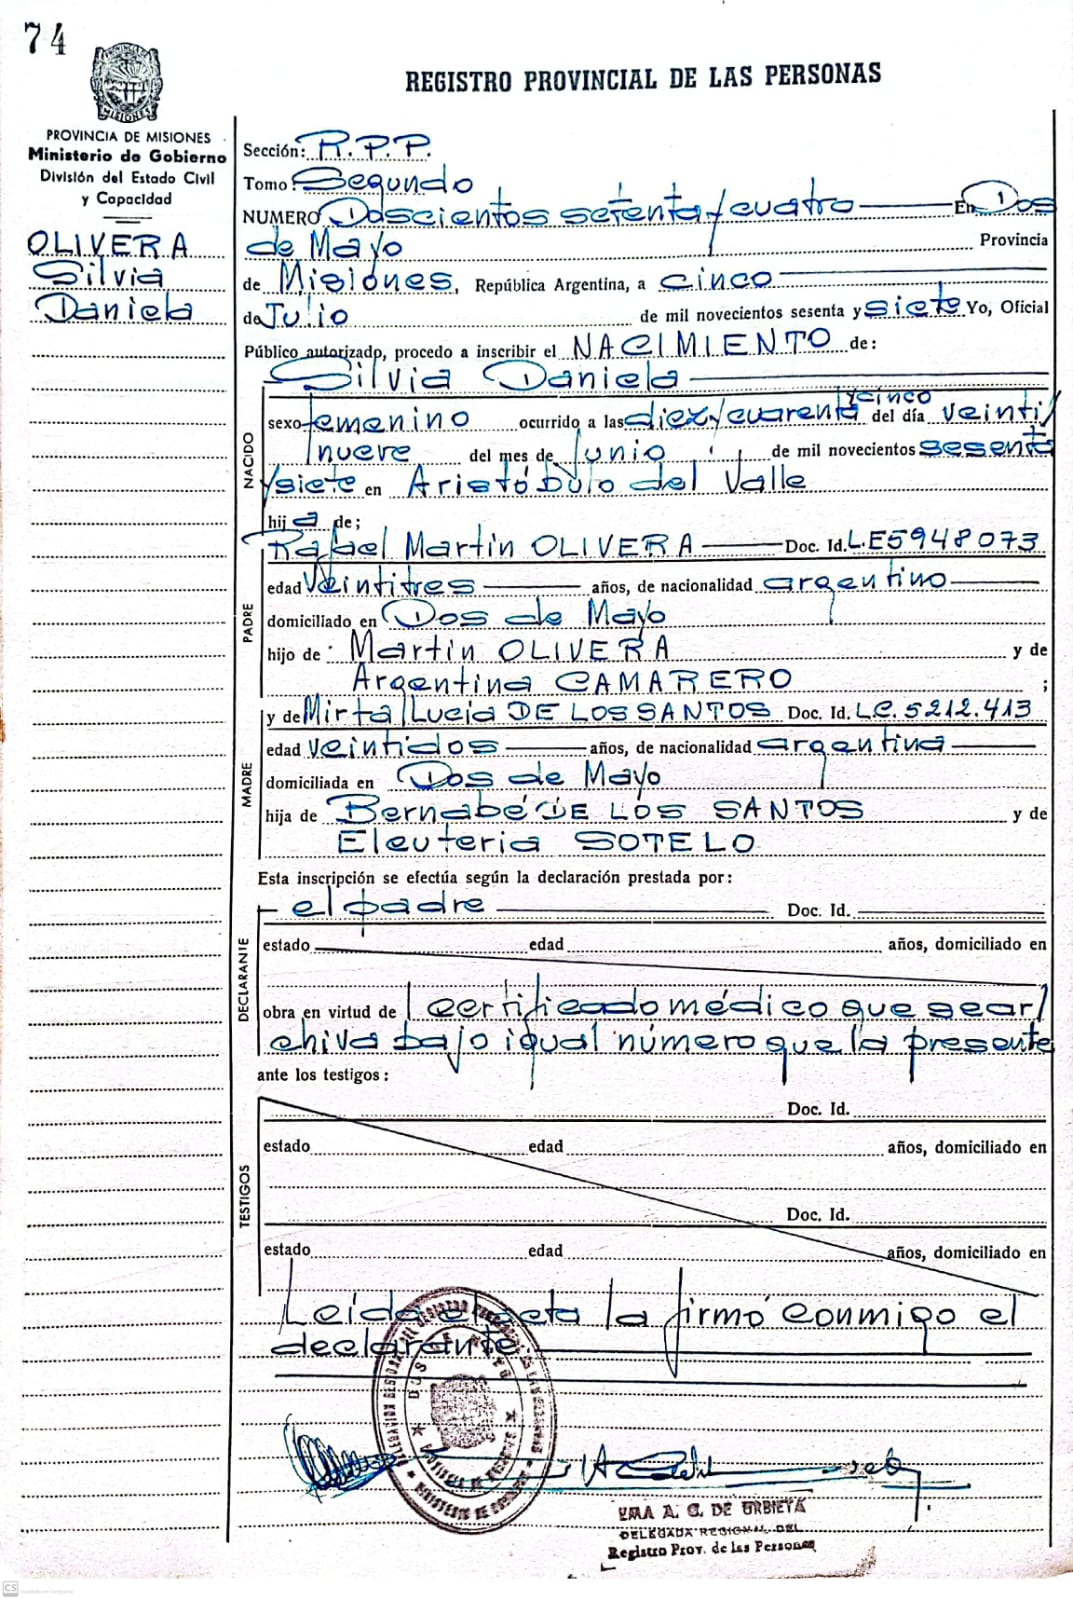 74
REGISTRO PROVINCIAL DE LAS PERSONAS
PROVINCIA DE MISIONES
Ministerio de Gobierno
División del Estado Civil
y Capacidad
OLIVERA
Silvia
Daniela
Sección: R.P.P.
Tomo: Segundo
NUMERO Doscientos setenta y cuatro En Dos
de Mayo Provincia
de Misiones, República Argentina, a cinco
de Julio de mil novecientos sesenta y siete Yo, Oficial
Público autorizado, procedo a inscribir el NACIMIENTO de:
Silvia Daniela
NACIDO
sexo femenino ocurrido a las diez y cuarenta y cinco del día veinti/
nueve del mes de Junio de mil novecientos sesenta
y siete en Aristóbulo del Valle
hija de;
PADRE
Rafael Martin OLIVERA Doc. Id. L.E 5948073
edad veintitres años, de nacionalidad argentino
domiciliado en Dos de Mayo
hijo de Martin OLIVERA y de
Argentina CAMARERO ;
MADRE
y de Mirta Lucia DE LOS SANTOS Doc. Id. L.C. 5212.413
edad veintidos años, de nacionalidad argentina
domiciliada en Dos de Mayo
hija de Bernabé DE LOS SANTOS y de
Eleuteria SOTELO
Esta inscripción se efectúa según la declaración prestada por:
DECLARANTE
el padre Doc. Id.
estado edad años, domiciliado en
obra en virtud de certificado médico que se ar/
chiva bajo igual número que la presente
ante los testigos:
TESTIGOS
Doc. Id.
estado edad años, domiciliado en
Doc. Id.
estado edad años, domiciliado en
Leída el acta la firmó conmigo el
declarante
DOS DE MAYO
MINISTERIO DE GOBIERNO
A. C. DE URBIETA
DELEGADA REGIONAL DEL
Registro Prov. de las Personas
CS